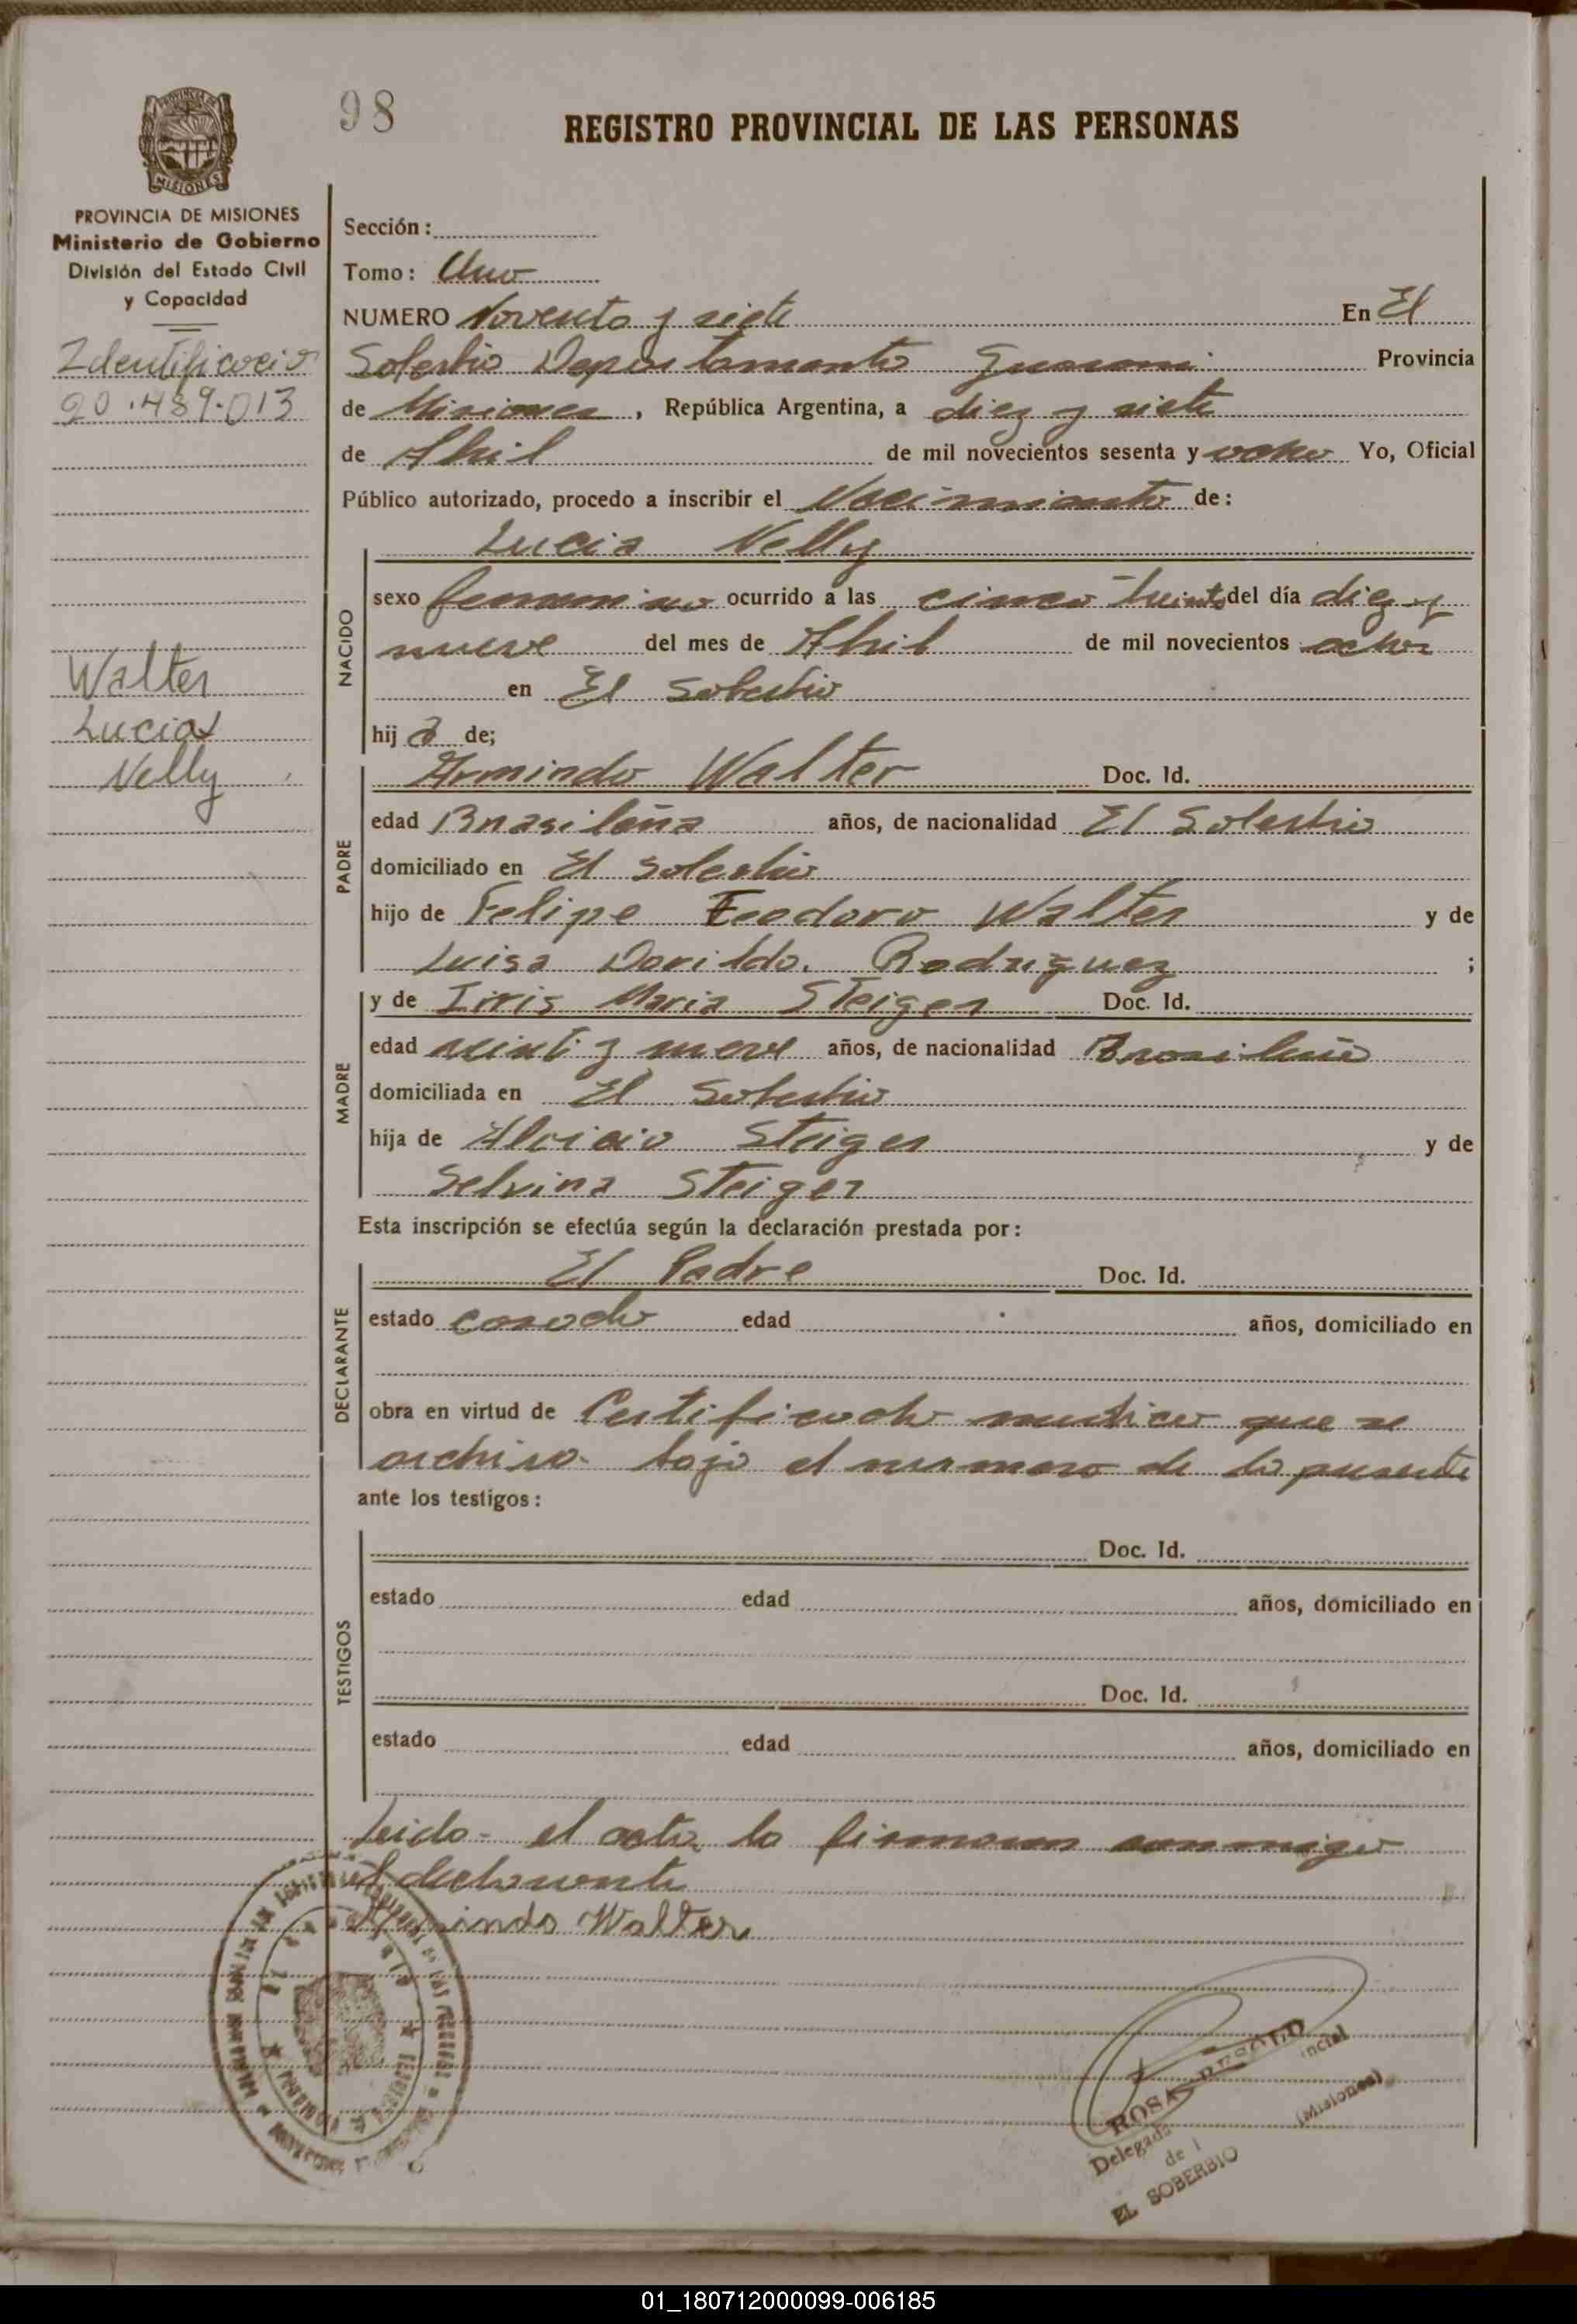 98
REGISTRO PROVINCIAL DE LAS PERSONAS
MISIONES
PROVINCIA DE MISIONES
Ministerio de Gobierno
División del Estado Civil
y Capacidad
Identificacio
20.489.013
Walter
Lucia
Nelly
Sección:
Tomo: Uno
NUMERO Noventa y siete En El
Soberbio Departamento Guarani Provincia
de Misiones, República Argentina, a diez y siete
de Abril de mil novecientos sesenta y ocho Yo, Oficial
Público autorizado, procedo a inscribir el Nacimiento de:
Lucia Nelly
NACIDO
sexo femenino ocurrido a las cinco treinta del día diez y
nueve del mes de Abril de mil novecientos ocho
en El Soberbio
hija de;
PADRE
Armindo Walter Doc. Id.
edad Brasileña años, de nacionalidad El Soberbio
domiciliado en El Soberbio
hijo de Felipe Teodoro Walter y de
Luisa Rodriguez ;
MADRE
y de Irris Maria Steiger Doc. Id.
edad veinti y nueve años, de nacionalidad Brasileña
domiciliada en El Soberbio
hija de Aloicio Steiger y de
Selvina Steiger
Esta inscripción se efectúa según la declaración prestada por:
DECLARANTE
El Padre Doc. Id.
estado casado edad años, domiciliado en
obra en virtud de Certificado medico que se
archiva bajo el numero de la presente
ante los testigos:
TESTIGOS
Doc. Id.
estado edad años, domiciliado en
Doc. Id.
estado edad años, domiciliado en
Leida el acta la firmaron conmigo
el declarante
Armindo Walter
ROSA
Delegada
de
(Misiones)
EL SOBERBIO
01_180712000099-006185